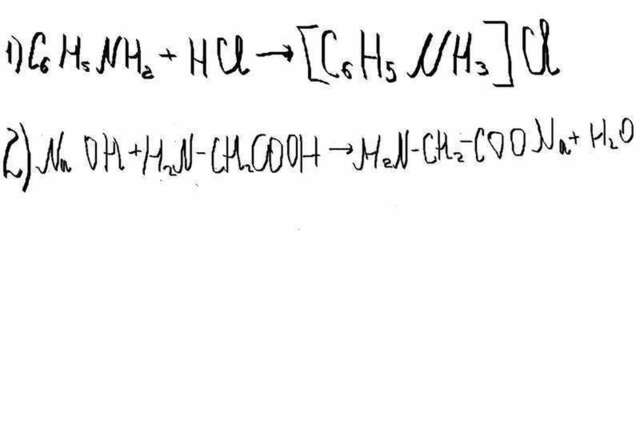 1) C₆H₅NH₂ + HCl → [C₆H₅NH₃]Cl
2) NaOH + H₂N-CH₂COOH → H₂N-CH₂-COONa + H₂O